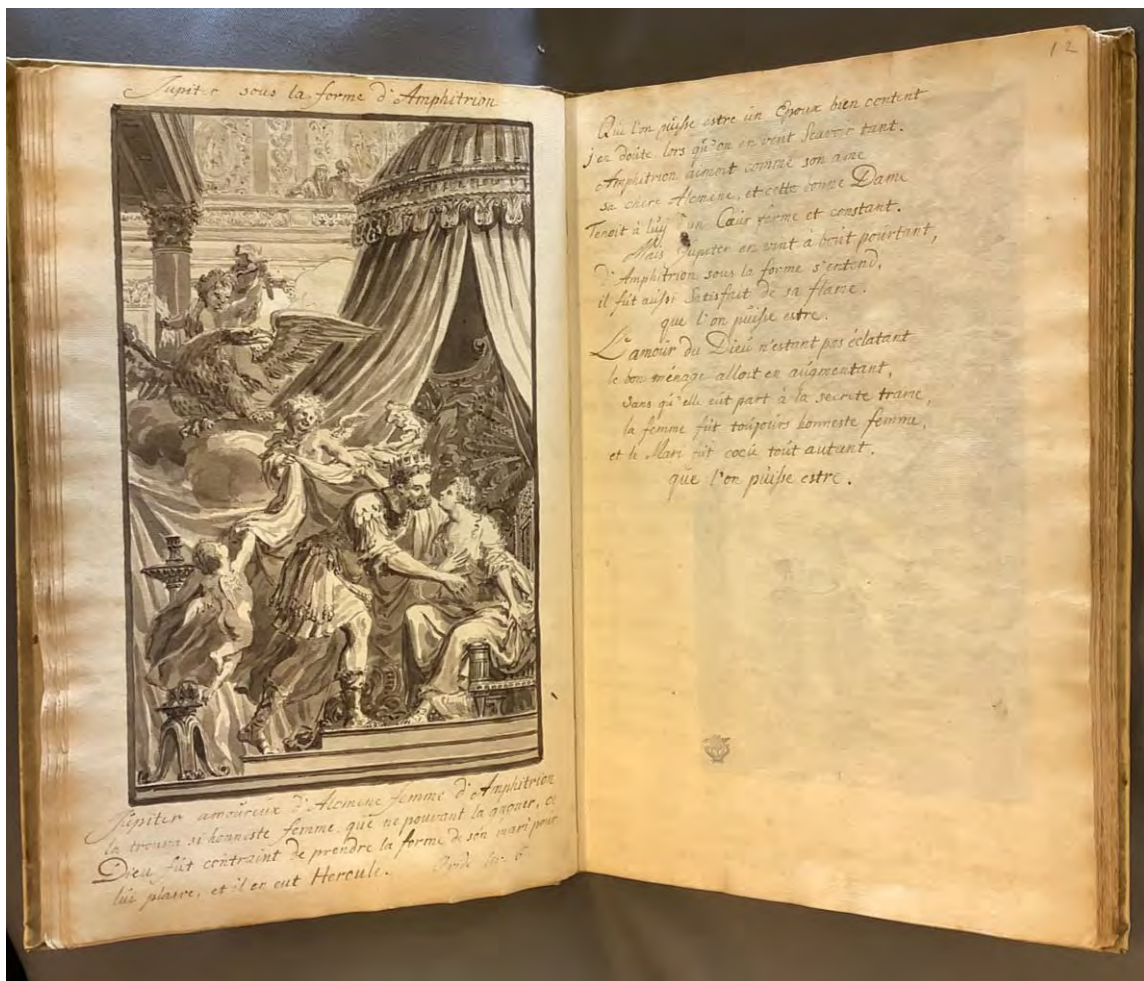 Jupiter sous la forme d'Amphitrion
Jupiter amoureux d'Alcmene femme d'Amphitrion
la trouva si honneste femme, que ne pouvant la gagner, ce
Dieu fut contraint de prendre la forme de son mari pour
lui plaire, et il en eut Hercule. Ovide liv. 6
12
Que l'on puisse estre un Epoux bien content
j'en doute lors qu'on en veut Scavoir tant.
Amphitrion aimoit comme son ame
sa chere Alcmene, et cette bonne Dame
Tenoit à luy un Cœur ferme et constant.
Mais Jupiter en vint à bout pourtant,
d'Amphitrion sous la forme s'entend,
il fut aussi Satisfait de sa flame.
que l'on puisse estre.
L'amour du Dieu n'estant pas éclatant
le bon ménage alloit en augmentant,
sans qu'elle eut part à la secrete trame,
la femme fut toujours honneste femme,
et le Mari fut cocu tout autant.
que l'on puisse estre.